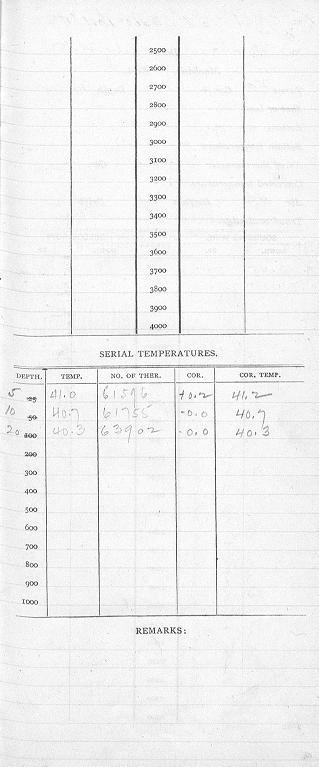 2500
2600
2700
2800
2900
3000
3100
3200
3300
3400
3500
3600
3700
3800
3900
4000
SERIAL TEMPERATURES.
DEPTH. TEMP. NO. OF THER. COR. COR. TEMP.
5 25 41.0 61596 +0.2 41.2
10 50 40.7 61755 -0.0 40.7
20 100 40.3 63902 -0.0 40.3
200
300
400
500
600
700
800
900
1000
REMARKS: